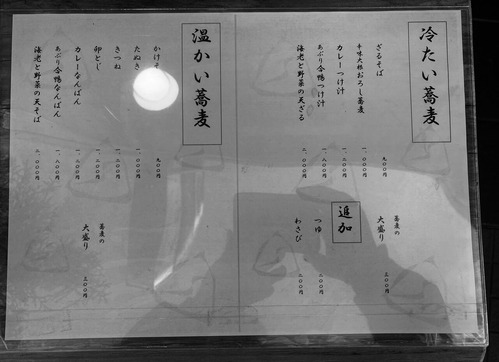 冷たい蕎麦
ざるそば 九〇〇円
辛味大根おろし蕎麦 一、〇〇〇円
カレーつけ汁 一、二〇〇円
あぶり合鴨つけ汁 一、八〇〇円
海老と野菜の天ざる 二、〇〇〇円
蕎麦の
大盛り 三〇〇円
追加
つゆ 二〇〇円
わさび 二〇〇円
温かい蕎麦
かけそば 九〇〇円
たぬき 一、〇〇〇円
きつね 一、二〇〇円
卵とじ 一、二〇〇円
カレーなんばん 一、二〇〇円
あぶり合鴨なんばん 一、八〇〇円
海老と野菜の天そば 二、〇〇〇円
蕎麦の
大盛り 三〇〇円